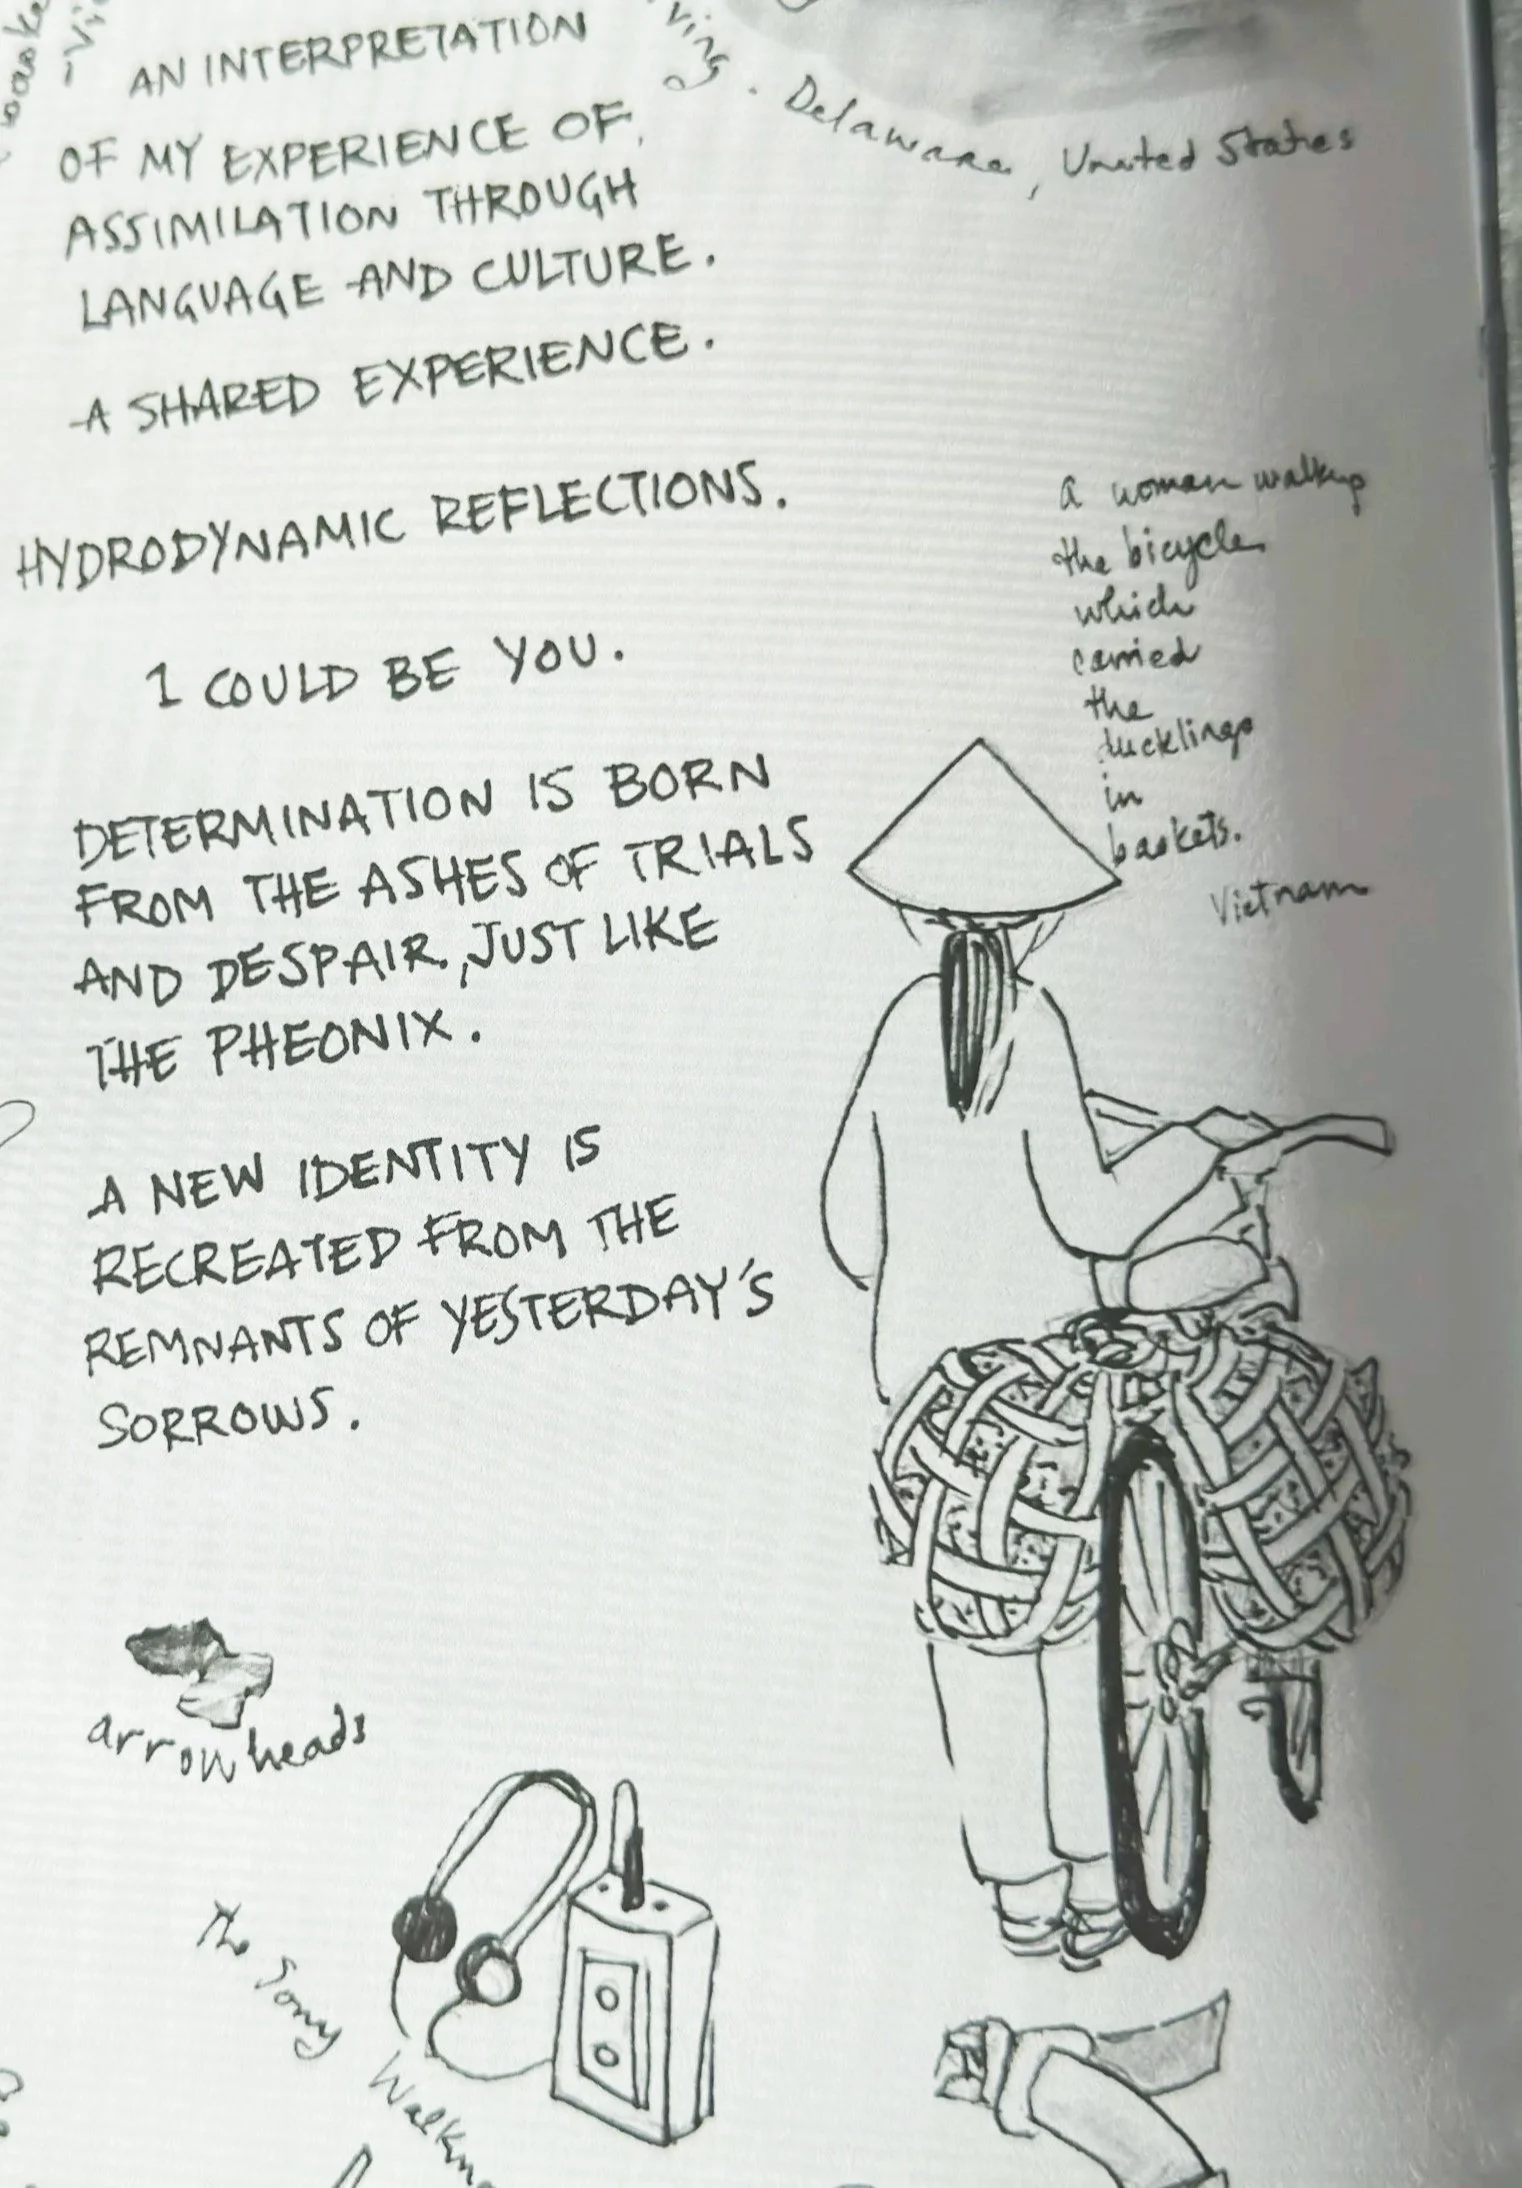 AN INTERPRETATION
OF MY EXPERIENCE OF
ASSIMILATION THROUGH
LANGUAGE AND CULTURE.
A SHARED EXPERIENCE.
HYDRODYNAMIC REFLECTIONS.
I COULD BE YOU.
DETERMINATION IS BORN
FROM THE ASHES OF TRIALS
AND DESPAIR., JUST LIKE
THE PHEONIX.
A NEW IDENTITY IS
RECREATED FROM THE
REMNANTS OF YESTERDAY'S
SORROWS.
Delaware, United States
a woman walking
the bicycle
which
carried
the
ducklings
in
baskets.
Vietnam
arrowheads
the Sony